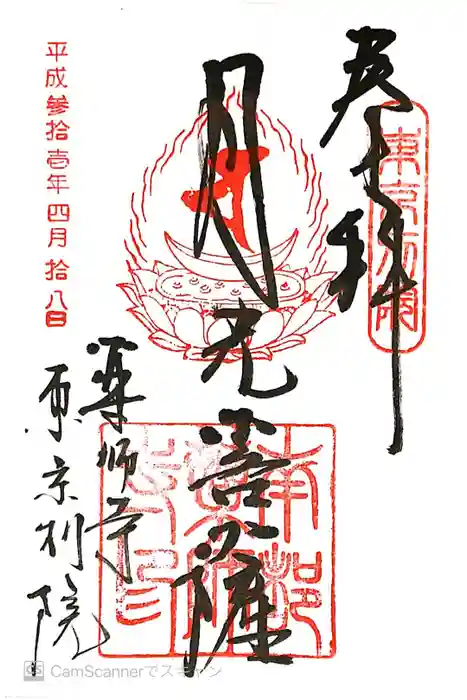 奉拝
東京別院
月光菩薩
薬師寺
東京別院
平成參拾壱年四月拾八日
CS CamScannerでスキャン